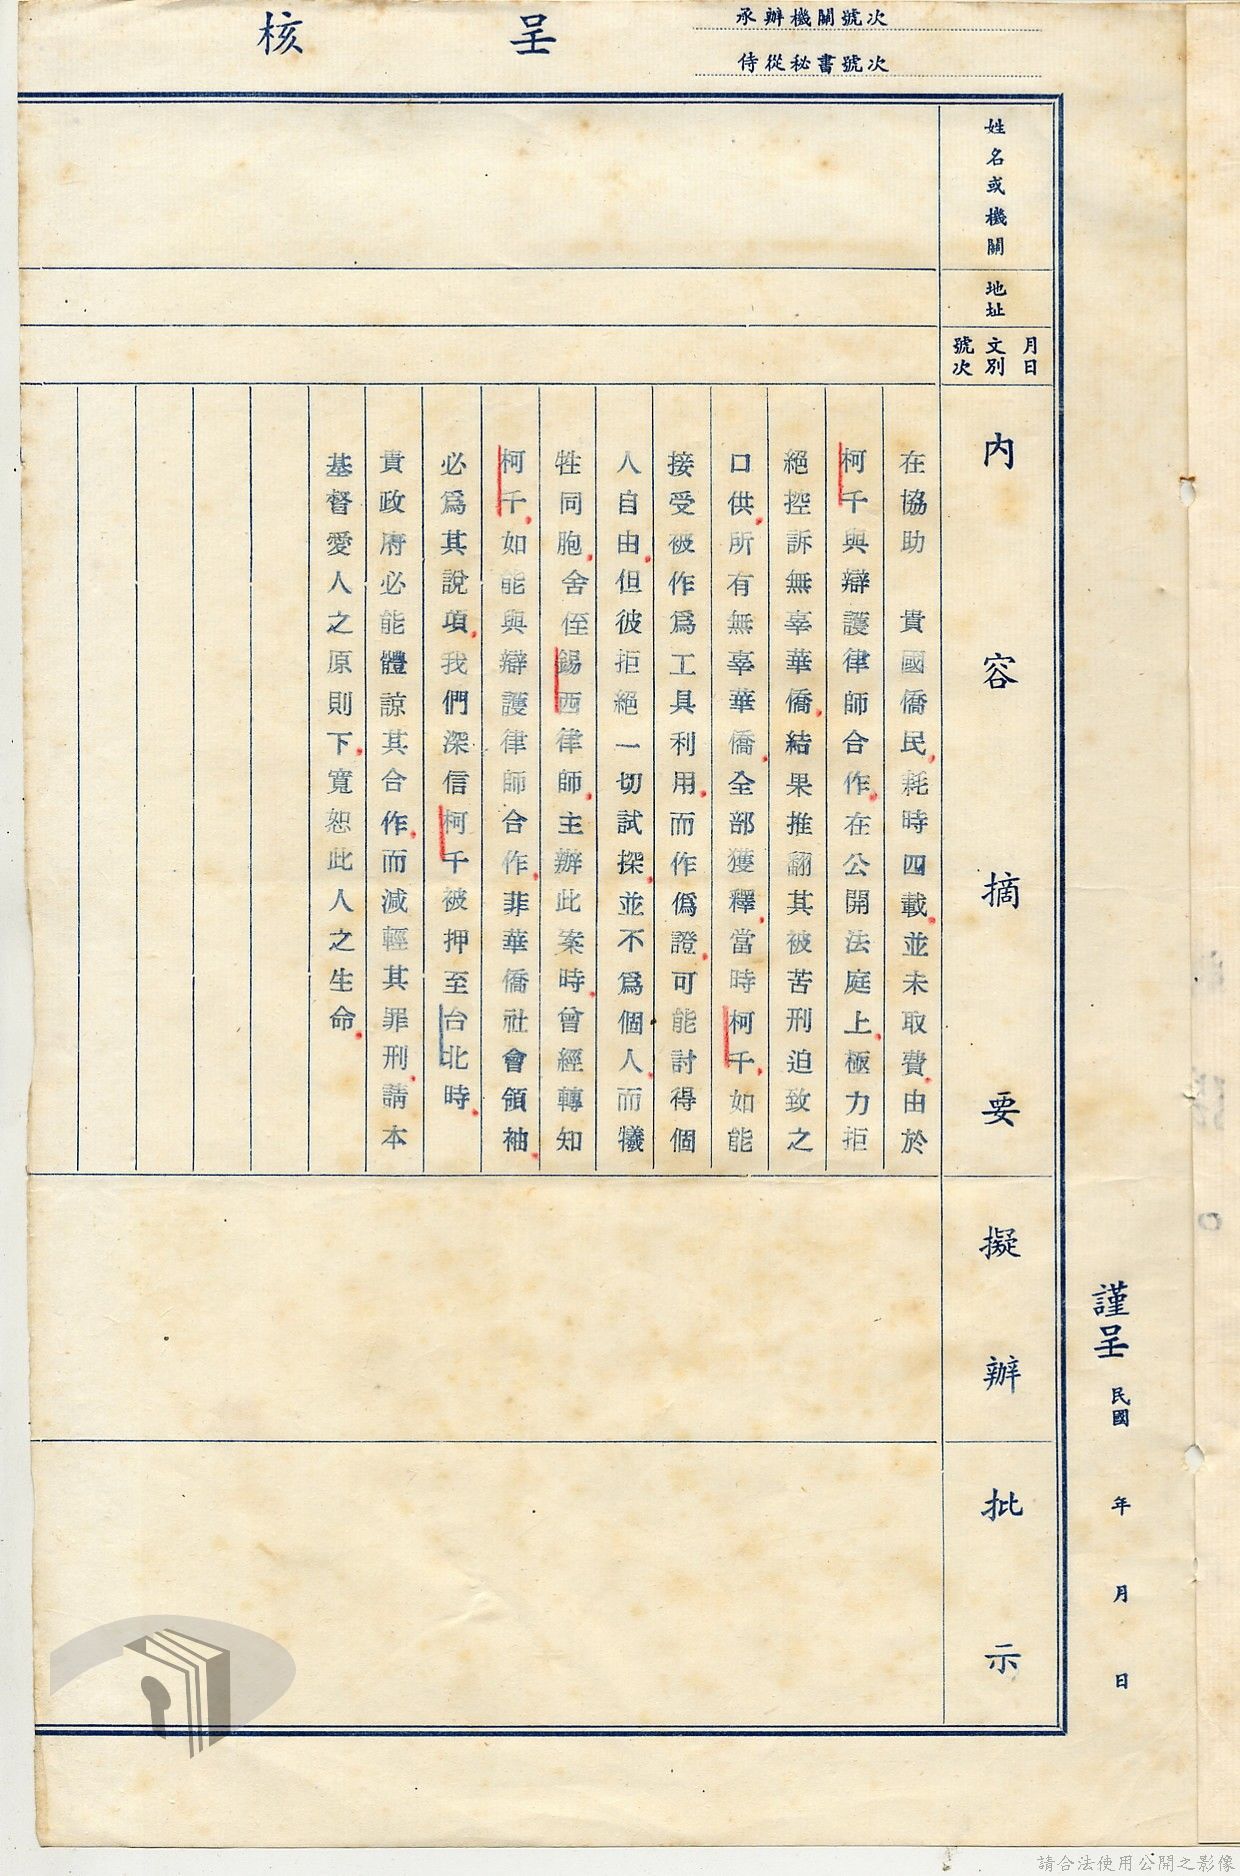 承辦機關號次
侍從秘書號次
呈核
謹呈 民國 年 月 日
姓名或機關
地址
月日
文別
號次
內容摘要
擬辦
批示
在協助　貴國僑民，耗時四載，並未取費，由於
柯千與辯護律師合作，在公開法庭上，極力拒
絕控訴無辜華僑，結果推翻其被苦刑迫致之
口供，所有無辜華僑，全部獲釋，當時柯千，如能
接受被作為工具利用，而作偽證，可能討得個
人自由，但彼拒絕一切試探，並不為個人，而犧
牲同胞，舍侄錫西律師，主辦此案時，曾經轉知
柯千，如能與辯護律師合作，菲華僑社會領袖，
必為其說項，我們深信柯千被押至台北時，
貴政府必能體諒其合作，而減輕其罪刑，請本
基督愛人之原則下，寬恕此人之生命，
請合法使用公開之影像